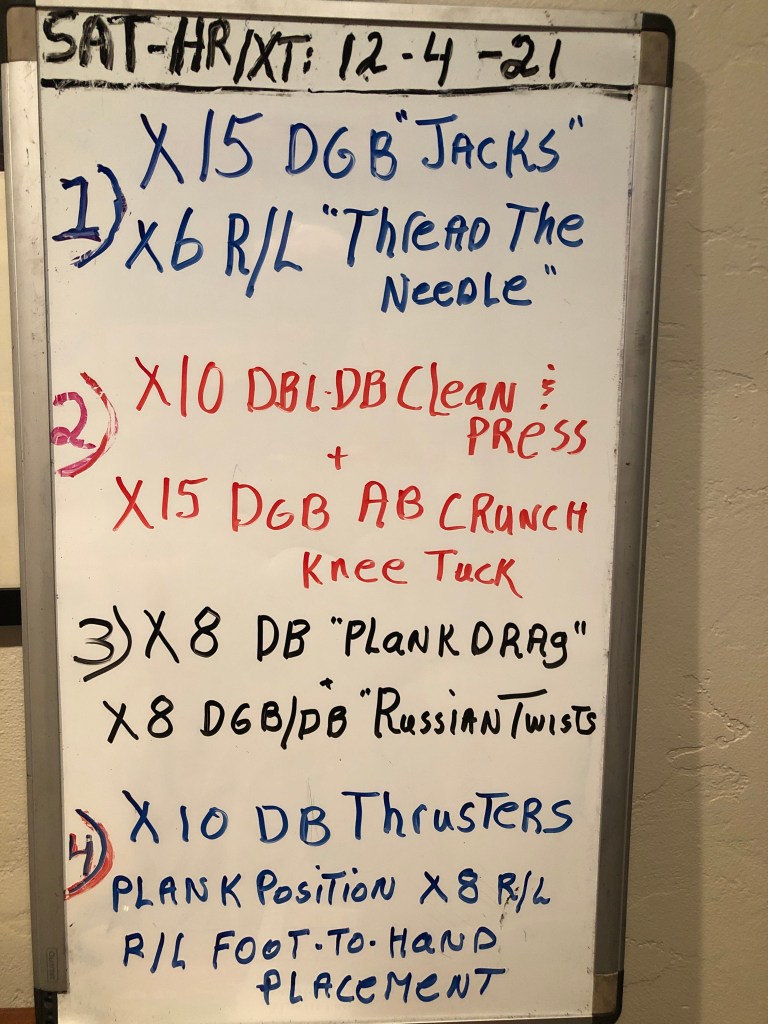 SAT-HR/XT: 12-4-21
1) X15 DGB "JACKS"
X6 R/L "THREAD THE
NEEDLE"
2) X10 DBL-DB CLEAN &
PRESS
+
X15 DGB AB CRUNCH
KNEE TUCK
3) X8 DB "PLANK DRAG"
+
X8 DGB/DB "RUSSIAN TWISTS
4) X10 DB THRUSTERS
PLANK POSITION X8 R/L
R/L FOOT-TO-HAND
PLACEMENT